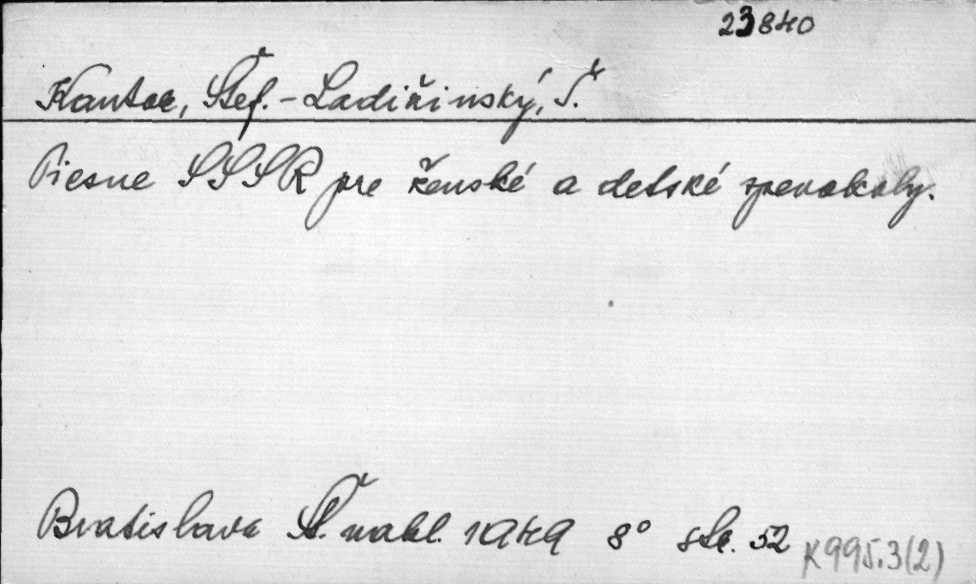 23840
Kantor, Štef. - Ladižinský, Š.
Piesne SSSR pre ženské a detské spevokoly.
Bratislava Št. nakl. 1949 8° str. 52
K 995.3(2)